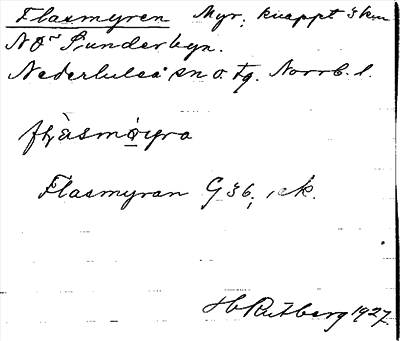 Flasmyren Myr, knappt 3 km
NO Sunderbyn.
Nederluleå sn o. tg. Norrb. l.
Flasmyran G 36, ek.
H Rutberg 1927